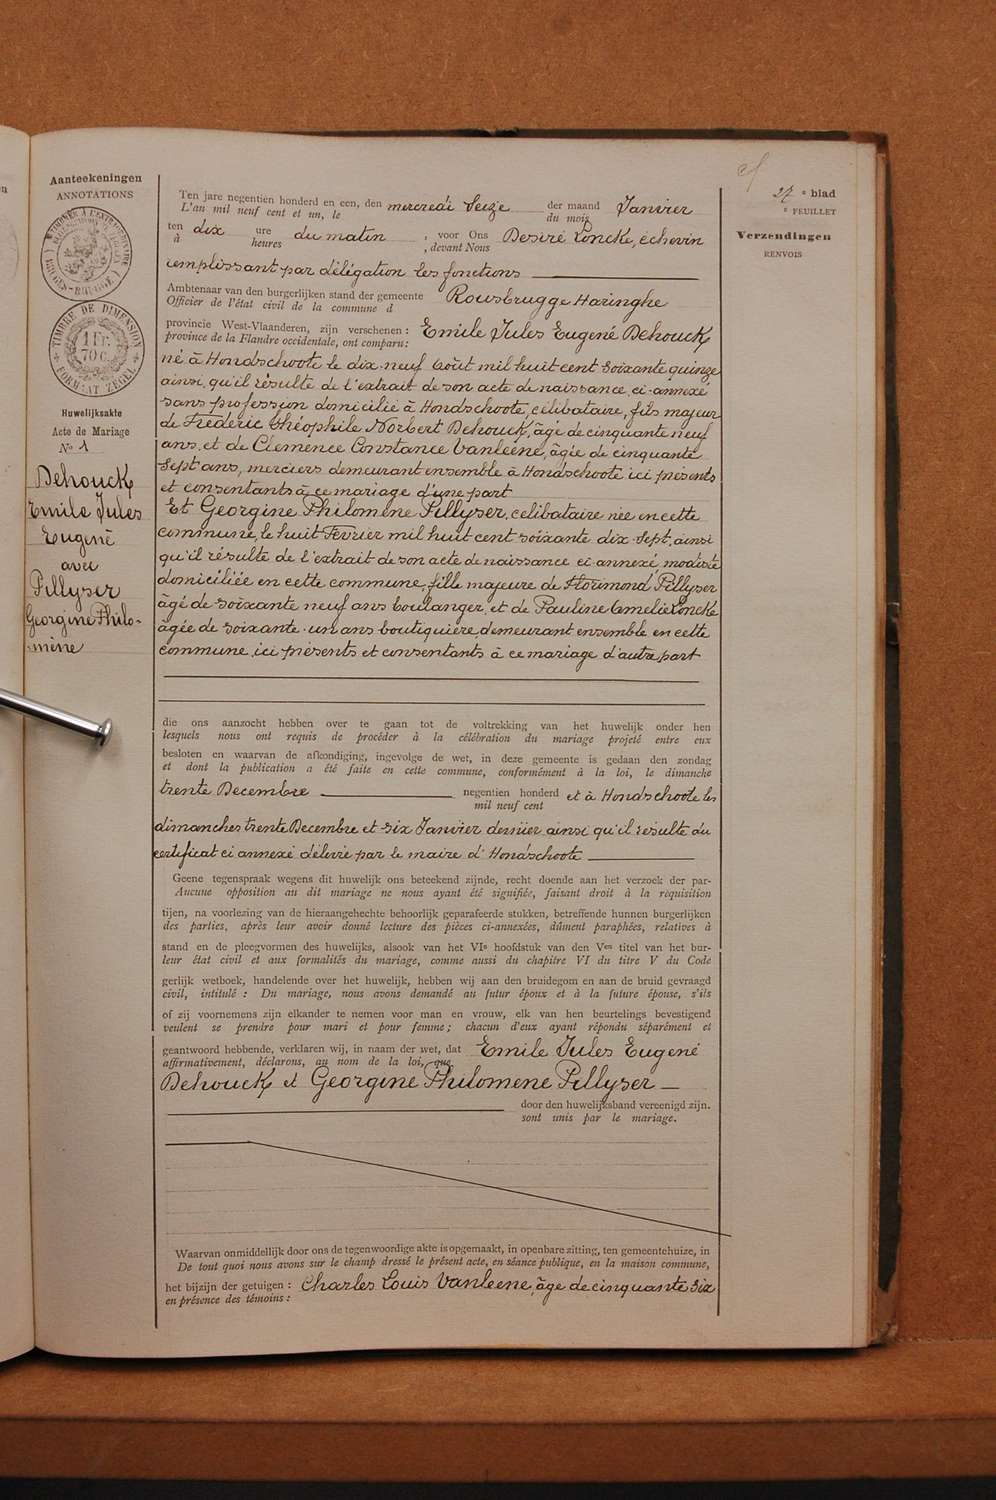 Aanteekeningen
ANNOTATIONS
TIMBRE DE DIMENSION
1 Fr.
70 c.
FORMAAT ZEGEL
Huwelijksakte
Acte de Mariage
No 1
Dehouck
Emile Jules
Eugène
avec
Pillyser
Georgine Philo-
mène
27 e blad
e FEUILLET
Verzendingen
RENVOIS
Ten jare negentien honderd en een, den mercredi Seize der maand Janvier
L'an mil neuf cent et un, le du mois
ten dix ure du matin , voor Ons Desiré Loncke, échevin
à heures , devant Nous
remplissant par délégation les fonctions
Ambtenaar van den burgerlijken stand der gemeente Rousbrugge Haringhe
Officier de l'état civil de la commune d
provincie West-Vlaanderen, zijn verschenen : Emile Jules Eugené Dehouck
province de la Flandre occidentale, ont comparu:
né à Hondschoote le dix neuf Août mil huit cent Soixante quinze
ainsi qu'il résulte de l'extrait de son acte de naissance ci-annexé
sans profession domicilié à Hondschoote, célibataire, fils majeur
de Fréderic Théophile Norbert Dehouck, âgé de cinquante neuf
ans, et de Clemence Constance Vanleene, âgée de cinquante
Sept ans, merciers demeurant ensemble à Hondschoote ici présents
et consentants à ce mariage d'une part
Et Georgine Philomène Pillyser, célibataire née en cette
commune, le huit Fevrier mil huit cent soixante dix-Sept, ainsi
qu'il résulte de l'extrait de son acte de naissance ci annexé, modiste
domiciliée en cette commune, fille majeure de Florimond Pillyser
âgé de soixante neuf ans boulanger, et de Pauline Amelie Loncke
âgée de soixante-un ans boutiquière, demeurant ensemble en cette
commune, ici présents et consentants à ce mariage d'autre part
die ons aanzocht hebben over te gaan tot de voltrekking van het huwelijk onder hen
lesquels nous ont requis de procéder à la célébration du mariage projeté entre eux
besloten en waarvan de afkondiging, ingevolge de wet, in deze gemeente is gedaan den zondag
et dont la publication a été faite en cette commune, conformément à la loi, le dimanche
trente Decembre negentien honderd et à Hondschoote les
mil neuf cent
dimanches trente Decembre et six Janvier dernier ainsi qu'il résulte du
certificat ci annexé délivré par le maire d'Hondschoote
Geene tegenspraak wegens dit huwelijk ons beteekend zijnde, recht doende aan het verzoek der par-
Aucune opposition au dit mariage ne nous ayant été signifiée, faisant droit à la requisition
tijen, na voorlezing van de hieraangehechte behoorlijk geparafeerde stukken, betreffende hunnen burgerlijken
des parties, après leur avoir donné lecture des pièces ci-annexées, dûment paraphées, relatives à
stand en de pleegvormen des huwelijks, alsook van het VIe hoofdstuk van den Ven titel van het bur-
leur état civil et aux formalités du mariage, comme aussi du chapitre VI du titre V du Code
gerlijk wetboek, handelende over het huwelijk, hebben wij aan den bruidegom en aan de bruid gevraagd
civil, intitulé : Du mariage, nous avons demandé au futur époux et à la future épouse, s'ils
of zij voornemens zijn elkander te nemen voor man en vrouw, elk van hen beurtelings bevestigend
veulent se prendre pour mari et pour femme ; chacun d'eux ayant répondu séparément et
geantwoord hebbende, verklaren wij, in naam der wet, dat Emile Jules Eugené
affirmativement, déclarons, au nom de la loi, que
Dehouck et Georgine Philomène Pillyser
door den huwelijksband vereenigd zijn.
sont unis par le mariage.
Waarvan onmiddelijk door ons de tegenwoordige akte is opgemaakt, in openbare zitting, ten gemeentehuize, in
De tout quoi nous avons sur le champ dressé le présent acte, en séance publique, en la maison commune,
het bijzijn der getuigen : Charles Louis Vanleene, âge de cinquante six
en présence des témoins :